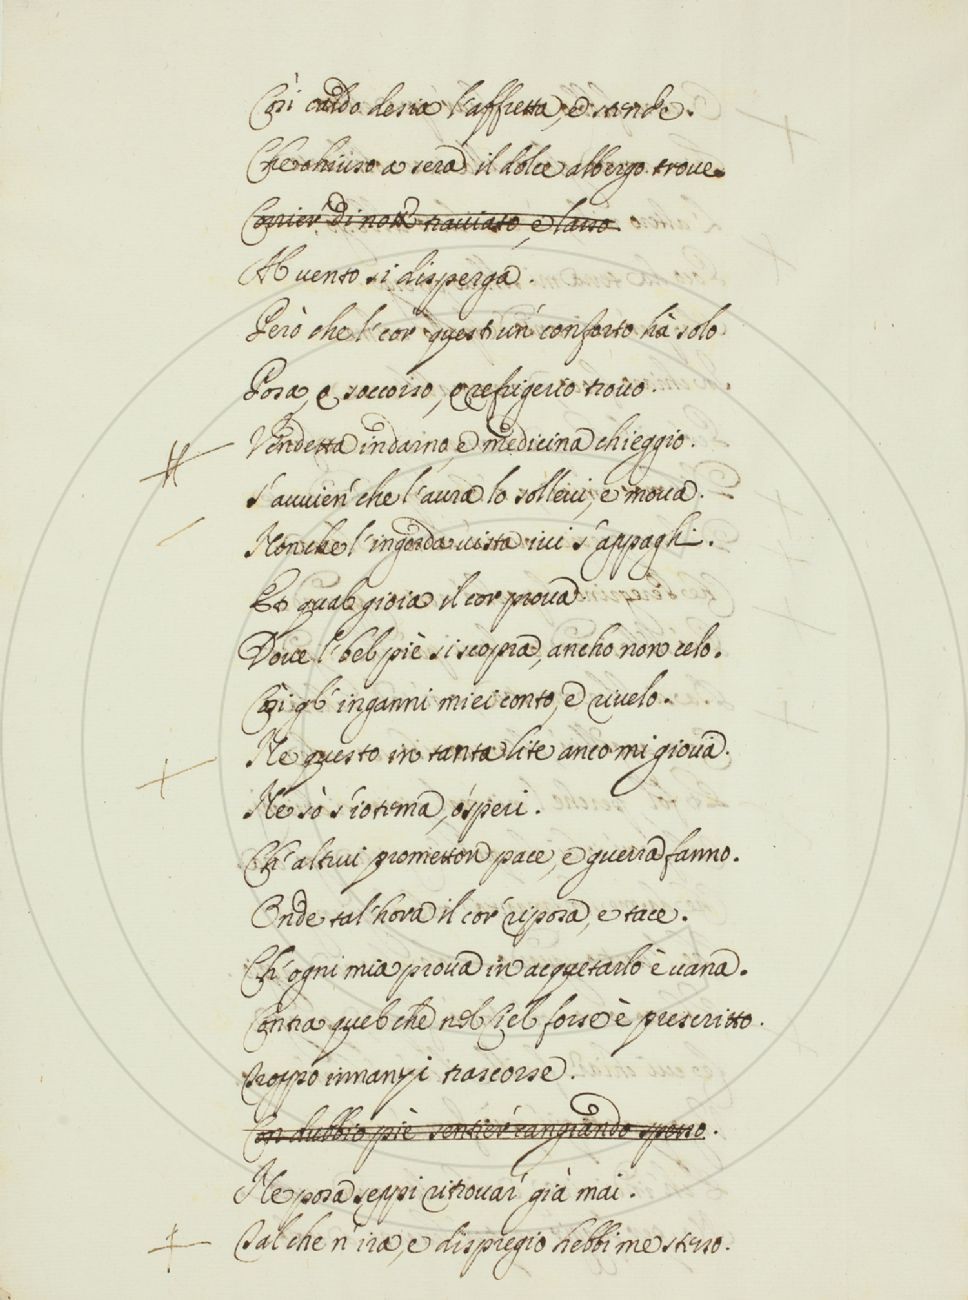 Così caldo desia l'affretta, e stende.
Che chiuso a sera il dolce albergo trove.
Corrier di notte traviato, e lasso
Al vento si disperga.
Però che l'cor quest'un' conforto hà solo.
Posa, o soccorso, o refrigerio trovo.
Vendetta indarno, e medicina chieggio.
S'avvien' che l'aura lo sollevi, e mova.
Non che l'ingorda vista ivi s'appaghi.
Et qual gioia il cor prova
Dove l'bel piè si scopra, ancho non celo.
Così gl'inganni miei conto, e rivelo.
Ne questo in tanta lite anco mi giova.
Ne sò s'io tema, ò speri.
Ch'altrui prometton pace, e guerra fanno.
Onde tal'hora il cor' riposa, e tace.
Ch'ogni mia prova in acquetarlo è vana.
Contra quel che nel Ciel forse è prescritto.
Troppo innanzi trascorse.
Con dubbio piè sentier' cangiando spesso.
Ne posa seppi ritrovar' già mai.
Tal che n'ira, e dispregio hebbi me stesso.